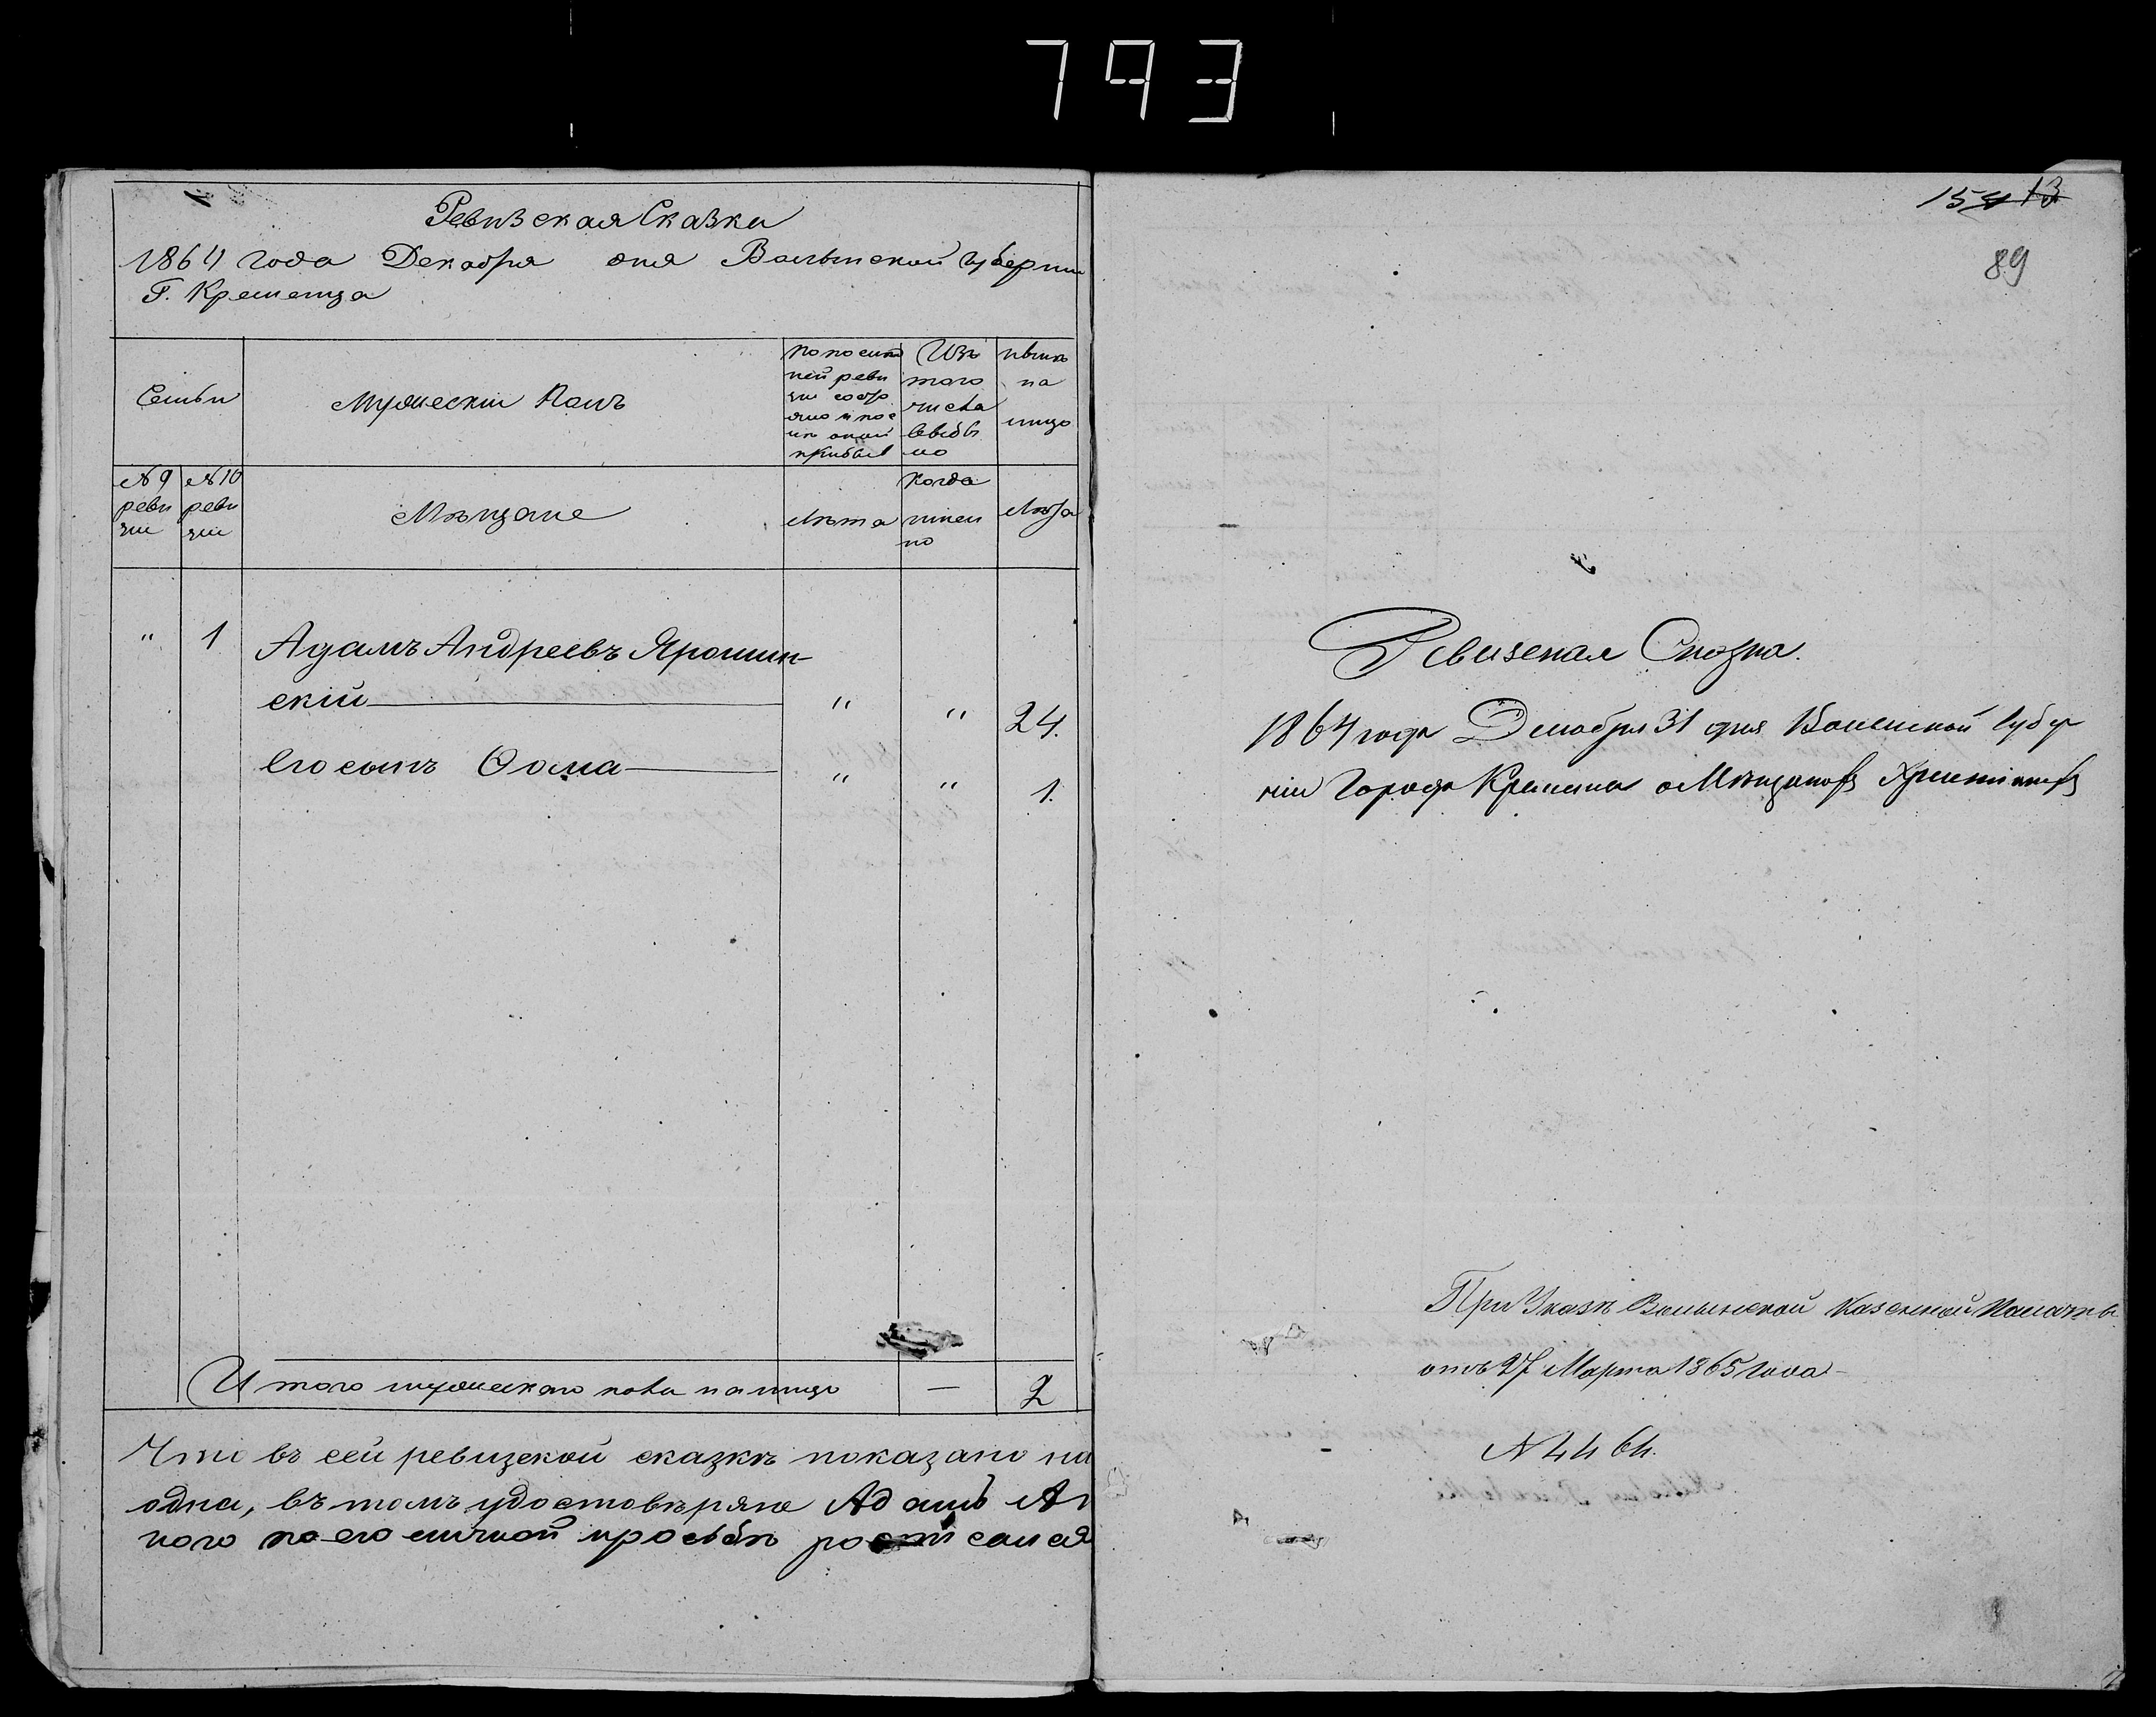 793
Ревизская Сказка
1864 года Декабря дня Волынской губерніи
Г. Кременца
Семьи
Мужескій Полъ
По послѣд
ней реви
зіи состо
яло и пос
лѣ оной
прибыл
Изъ
того
числа
выбы
ло
Нынѣ
на
лицо
№ 9
реви
зіи
№ 10
реви
зіи
Мѣщане
Лѣта
Когда
имен
но
Лѣта
" 1 Адамъ Андреевъ Ярошин-
скій " " 24.
Его сынъ Ѳома " " 1.
Итого мужескаго пола на лицо — 2
Что въ сей ревизской сказкѣ показано на
одна, въ томъ удостовѣряю Адамъ Ан
ного по его личной просьбѣ росписался
13
89
Ревизская Сказка.
1864 года Декабря 31 дня Волынской Губер
ніи Города Кременца о Мѣщанахъ Христіанахъ
При Указѣ Волынской Казенной Палаты
отъ 27 Марта 1865 года
№ 4464.